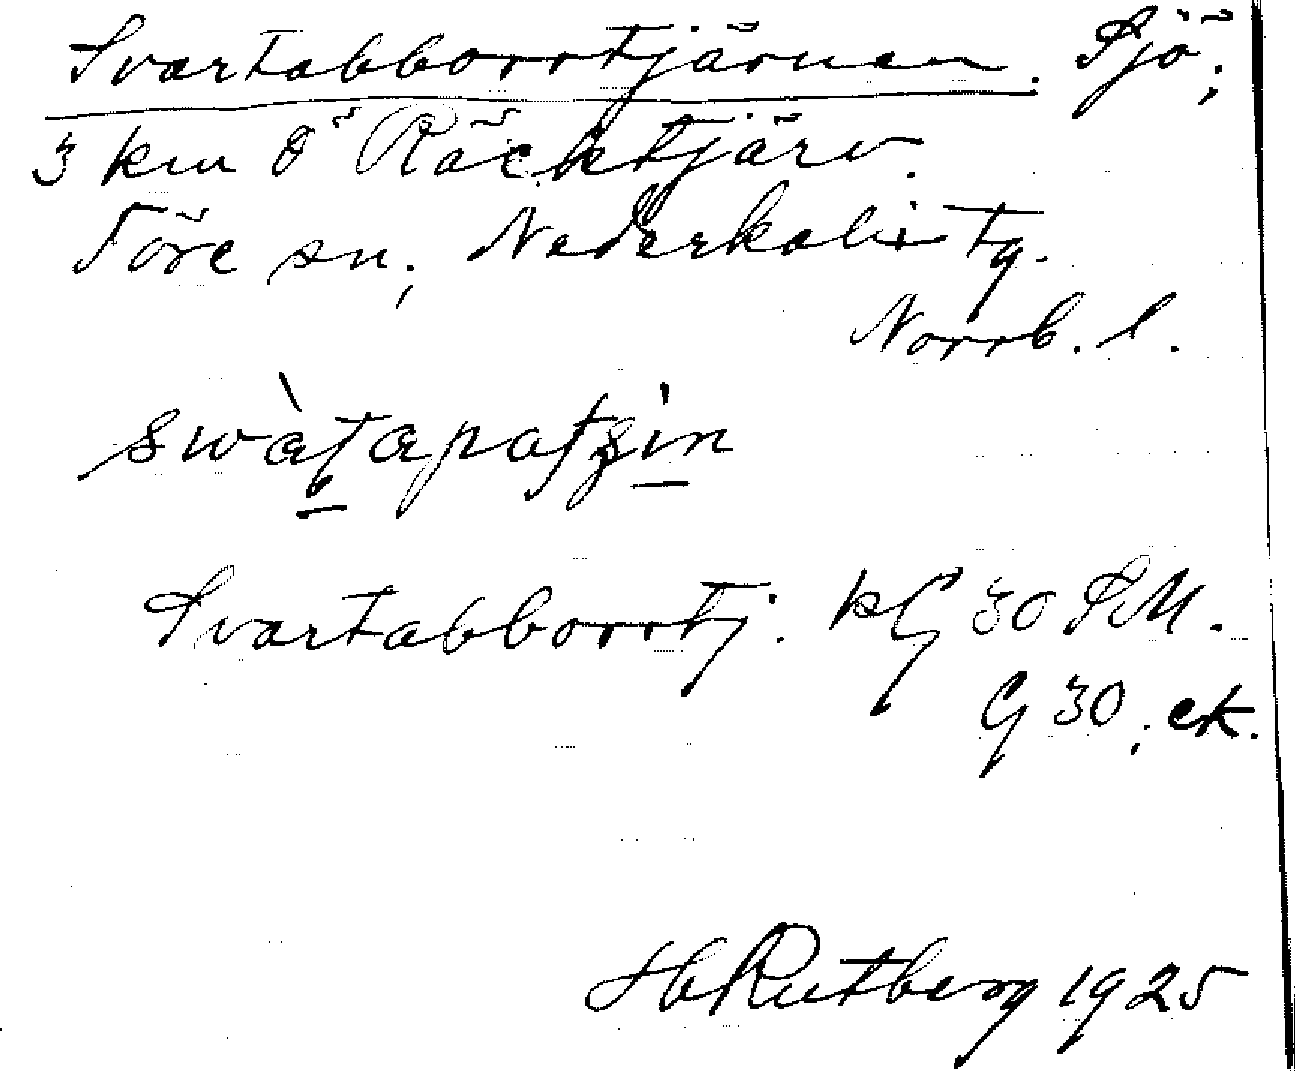 Svartabborrtjärnen. Sjö;
3 km ö Räcktjärv.
Töre sn; Nederkalix tg.
Norrb. l.
swàtapatʒin
Svartabborrtj. kG 30 SM.
G 30; ek.
H Rutberg 1925